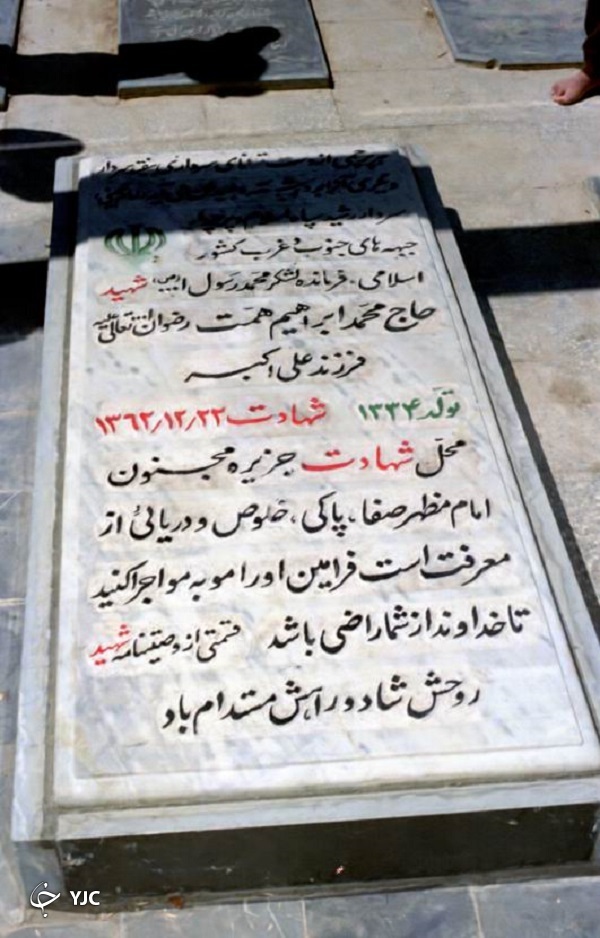 سردار رشید سپاه اسلام
جبهه های جنوب و غرب کشور
اسلامی . فرمانده لشکر محمد رسول ا... (ص) شهید
حاج محمد ابراهیم همت رضوان الله تعالی علیه
فرزند علی اکبر
تولد ۱۳۳۴ شهادت ۱۳۶۲/۱۲/۲۲
محل شهادت جزیره مجنون
امام مظهر صفا، پاکی، خلوص و دریائی از
معرفت است فرامین او را مو به مو اجرا کنید
تا خداوند از شما راضی باشد قسمتی از وصیتنامه شهید
روحش شاد و راهش مستدام باد
YJC